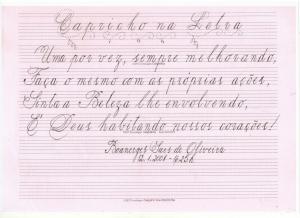 Capricho na Letra
Uma por vez, sempre melhorando,
Faça o mesmo com as próprias ações,
Sinta a Beleza lhe envolvendo,
E' Deus habitando nossos corações!
de Oliveira